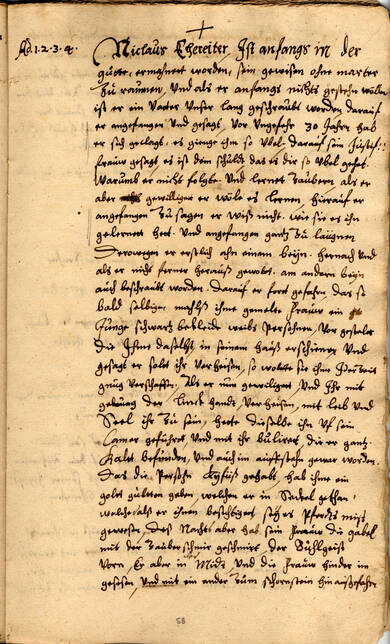 Ad. 1. 2. 3. 4. Niclaus Ist anfangs in der
guette, ermahnett worden, sein gewissen ohne marter
zu raumen, Und als er anfangs nichts gestehn wollen
ist er ein Vatter Unser lang geschraubt worden darauf
er angefangen Und gesagt, Vor Ungefehr 30 Jahre hab
er sich geclagt, es gienge ihm so Ubel, darauf sein
frauw gesagt es ist dein schuldt das es dir so Ubel gehet
Warumb er nichts folgte Und lernet zaubern als er
aber gewilliget er wöle es lernen, hierauf er
angefangen zu sagen er wiß nicht wie sie es ihn
gelernett hett Und angefangen gantz zu laügnen
Derowegen er erstlich ahn einem beyn, hernach Und
als er nicht ferner herauß gewolt, am andern beyn
auch beschraubt worden. Darauf er fort gefahren, das so
bald selbigen mahlß ihme gemelte frauw ein
Junge schwartz bekleide weibs Persohnen, Vor gestelet
die Ihme daselbst in seinem hauß erschienen Und
gesagt er solt ihr Verheisen, so wollte sie ihme
gnug Verschaffen, Als er nun gewilliget, Und Ihr mit
gebüng der linck handt, Verheisen, mit leib Und
Seel ihr zu sein, hette dieselbe ihn Uf sein
Camer gefuhret Und mit ihr buliret, die er gantz
Kalt befunden, Und auch im aufstehn gewar worden,
das die Persohn gehabt, hab ihme ein
golt gülten geben, welchen er in Seckel gethan,
welchs als er ihnen besichtiget seye es Pferdts mist
gewesen, Deß Nachts aber hab sein frauw die gabel
mit der zauberschmir geschmirt, der Buhlgeist
Vorn, Er aber in Mitz Und die frauw hinder im
gesesen, Und mit ein ander zum schornstein hinaußgefahren
58